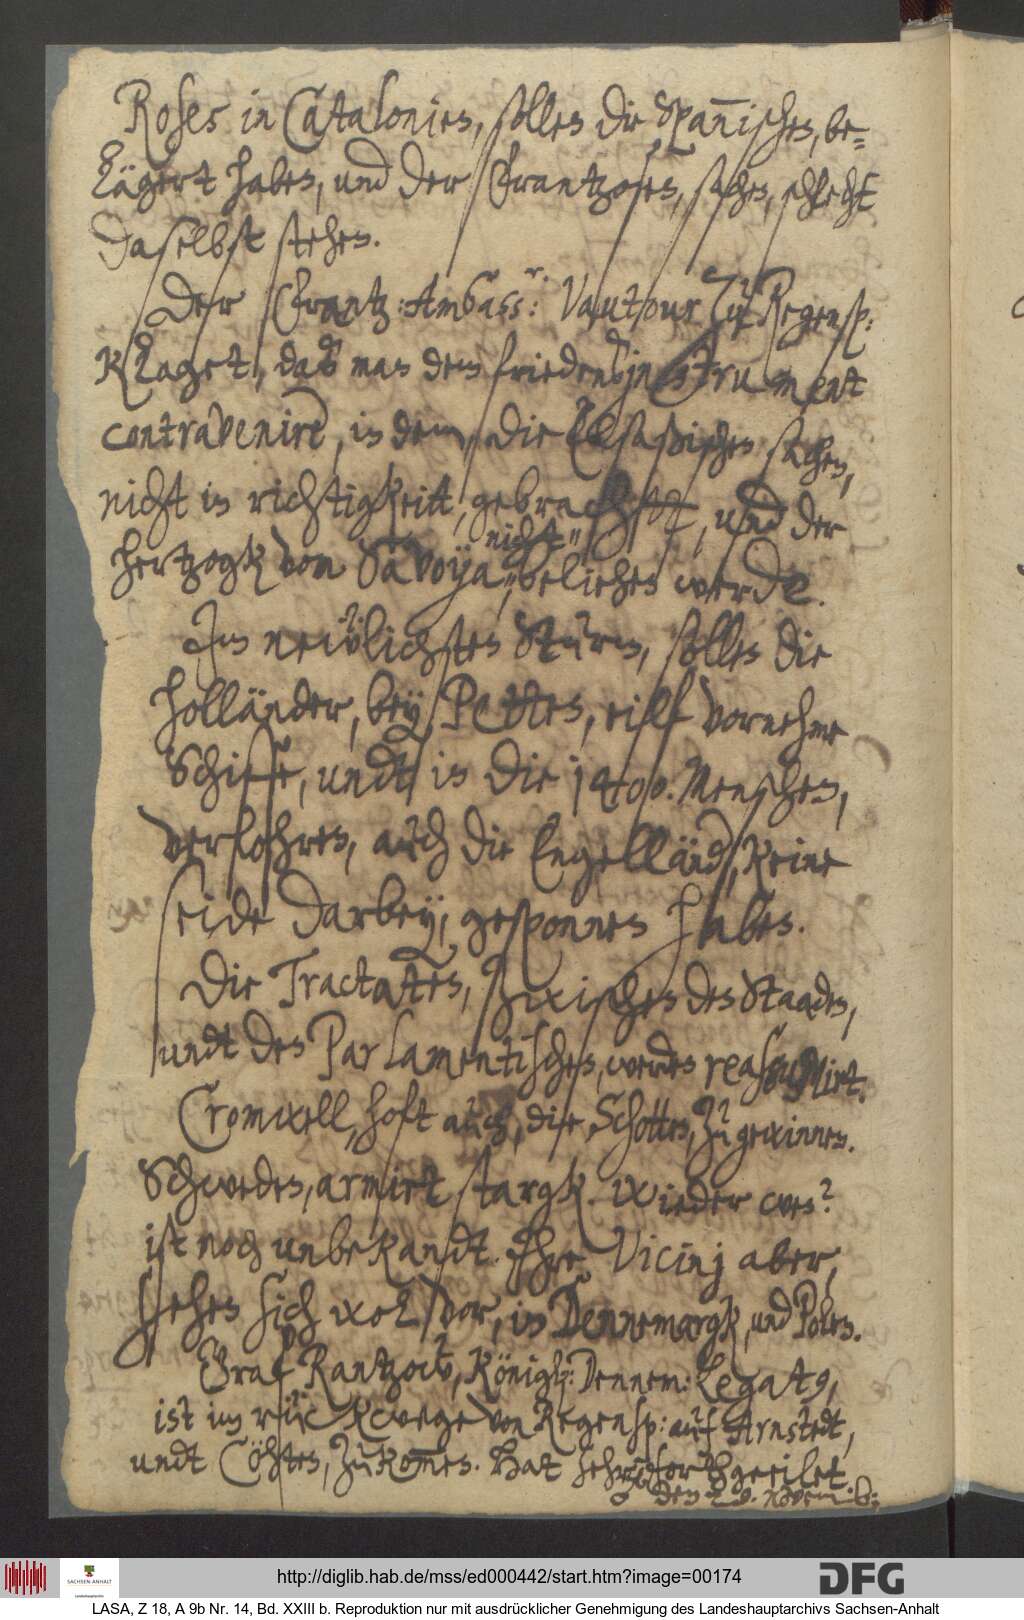 Roses in Catalonien, sollen die Spannischen, be=
lägert haben, und der Frantzosen, sachen, schlecht
daselbst stehen.
Der Frantz: Ambass.r: Vautour zu Regensp:
klaget, daß man dem friedensinstrument
contravenire, in dem, die Elsaßischen sachen,
nicht in richtigkeitt, gebracht, und der
Hertzogk von Savoya, nicht" beliehen werde.
Im neẅlichsten Sturm, sollen die
Holländer, bey Petten, eilf vornehme
Schiffe, undt in die 1400. Menschen,
verlohren, auch die Engelländ, keine
seide darbey, gesponnen haben.
Die Tractaten, zwischen den Staaden,
undt den Parlamentischen, werden reassumirt.
Cromwell, hoft auch, die Schotten, zu gewinnen.
Schweden, armirt stargk. Wieder wen?
ist noch unbekandt. Ihre Vicinj aber,
sehen sich wol vor, in Dennemargk, und Polen.
Graf Rantzow, Königl: Dennem: Legatus,
ist im rück wege von Regensp: auf Arnstedt,
undt Cöhten, zukommen. Hat sehr fortgeeilet
den Novemb:
http://diglib.hab.de/mss/ed000442/start.htm?image=00174
DFG
SACHSEN-ANHALT
Landeshauptarchiv
LASA, Z 18, A 9b Nr. 14, Bd. XXIII b. Reproduktion nur mit ausdrücklicher Genehmigung des Landeshauptarchivs Sachsen-Anhalt